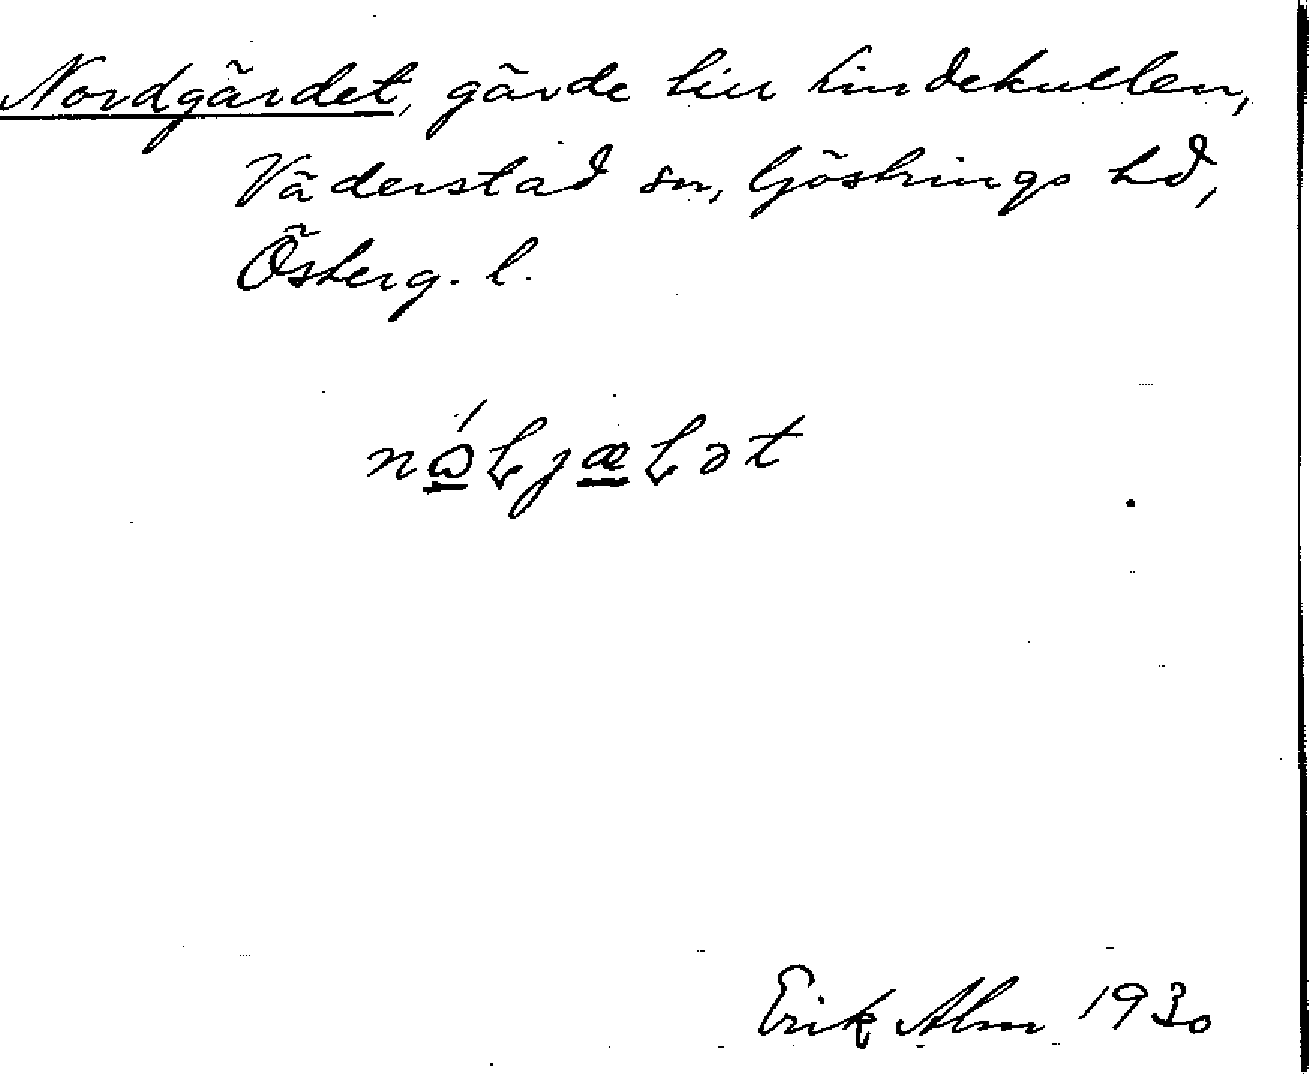 Nordgärdet, gärde till Lindekullen,
Väderstad sn, Göstrings hd,
Österg. l.
Erik Alm 1930